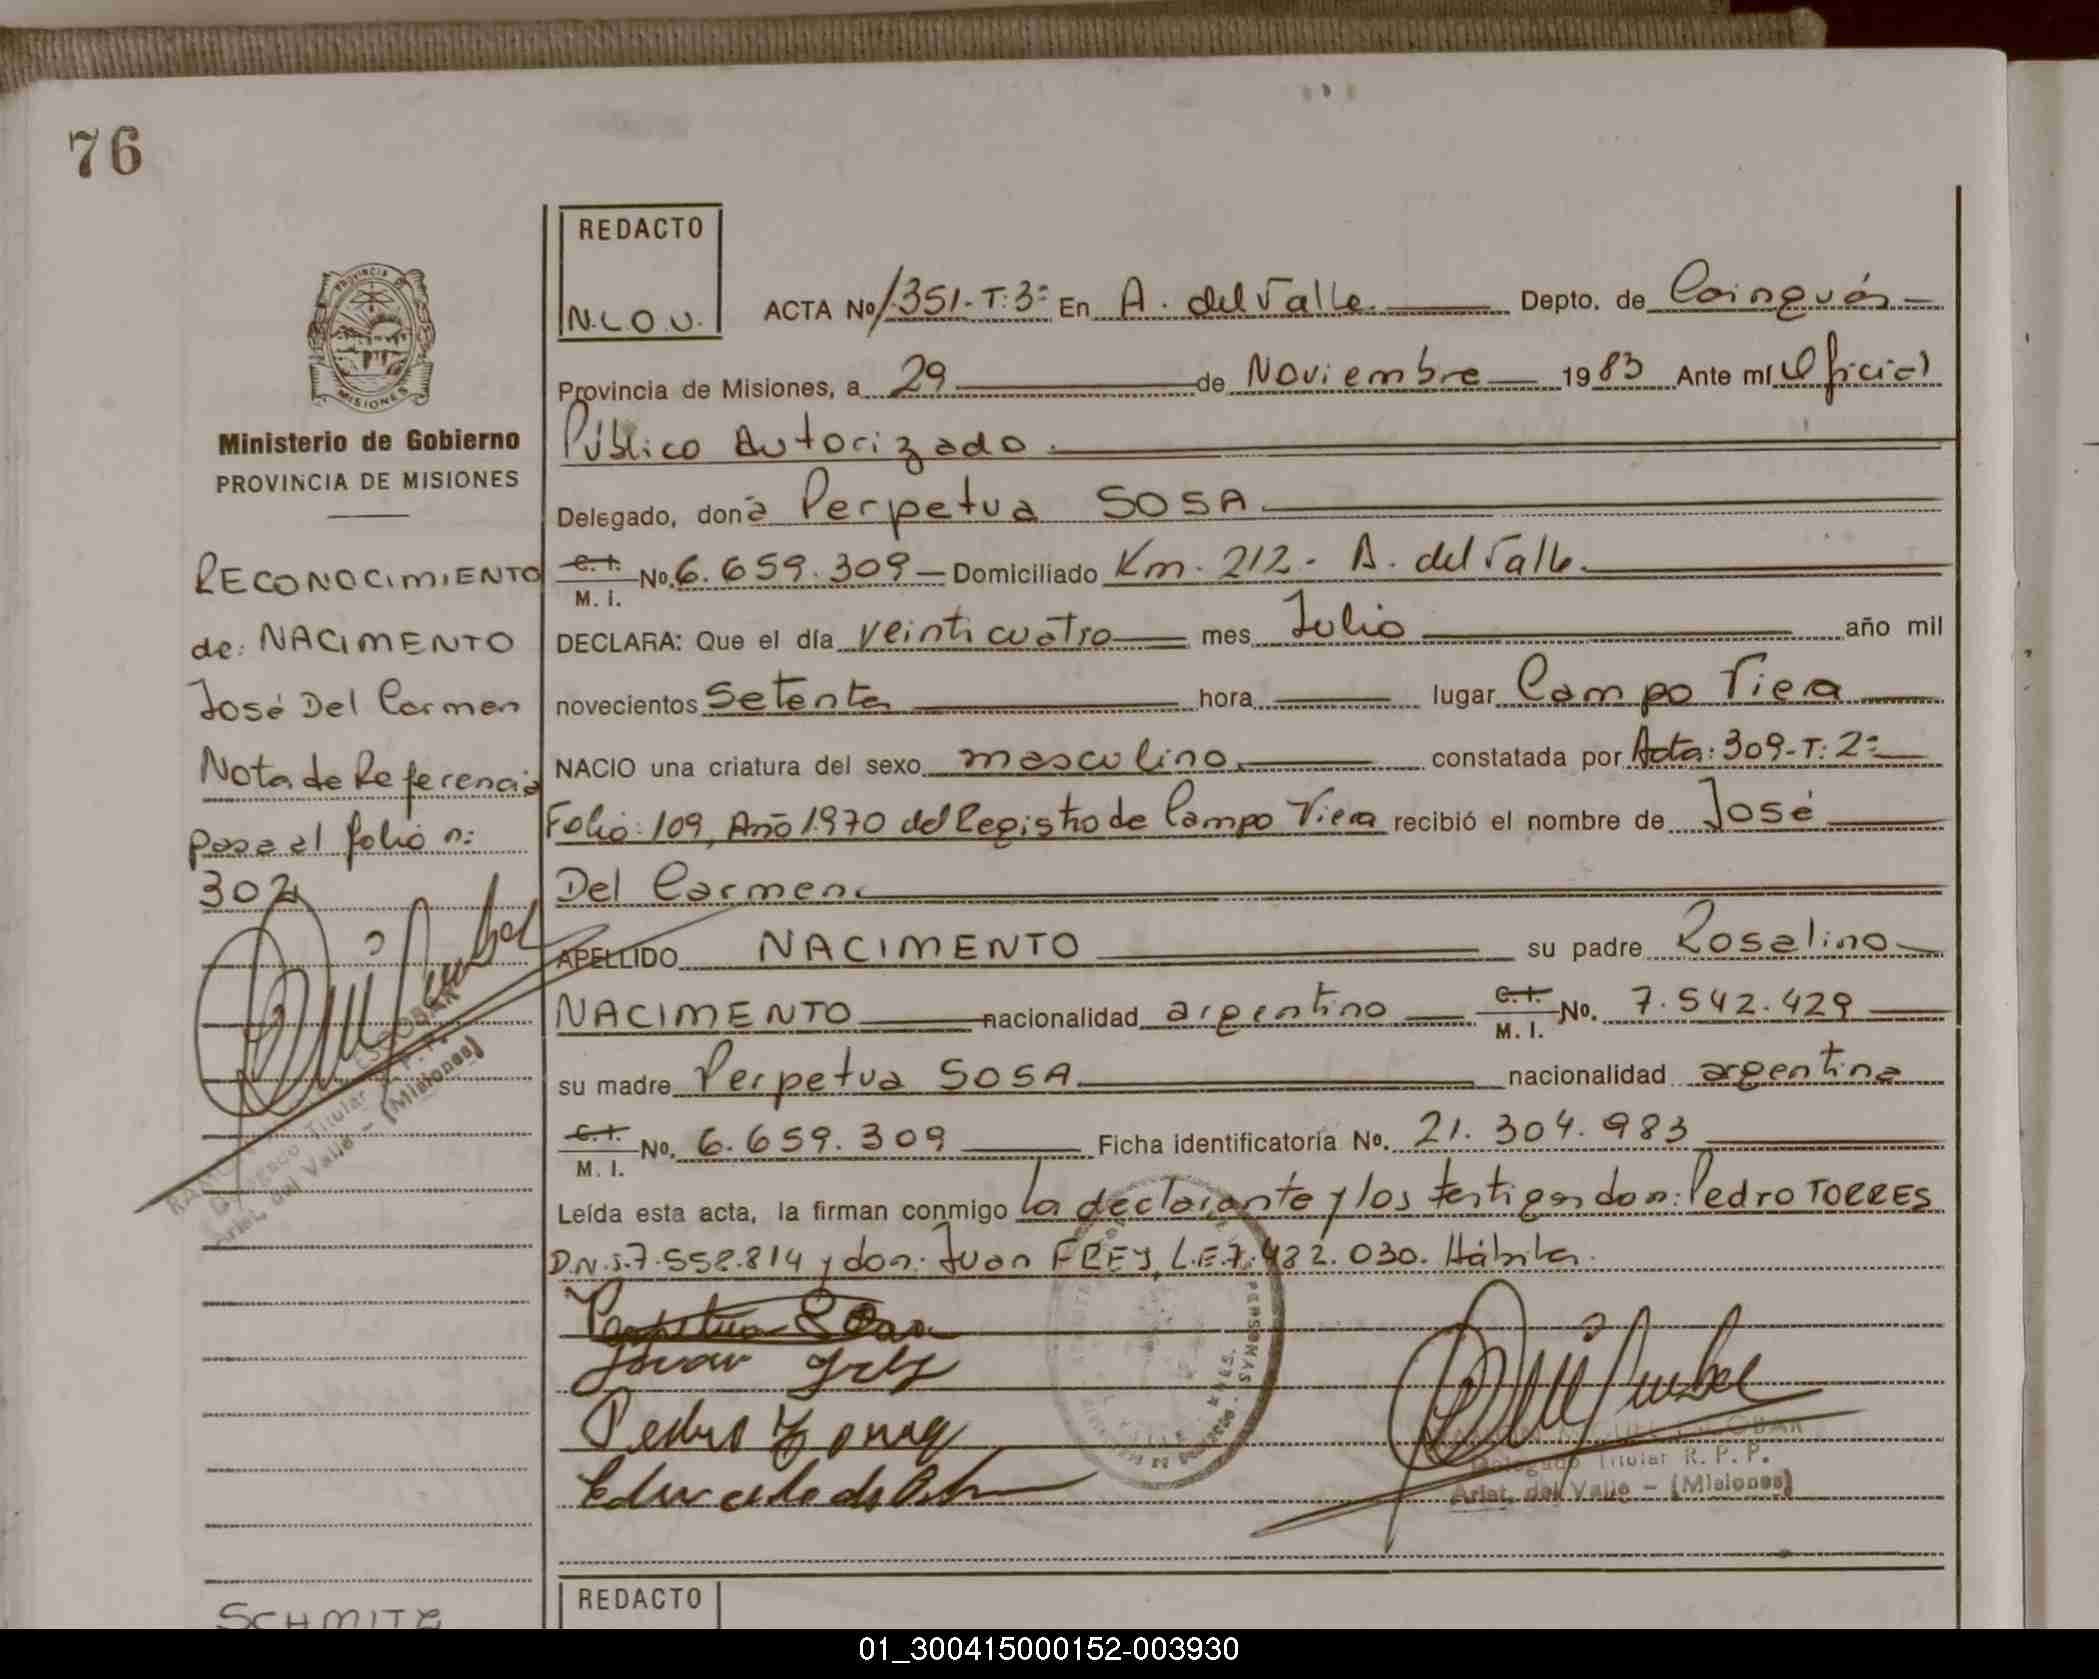 76
REDACTO
N.L.O.U.
ACTA No 1351-T:3º En A. del Valle Depto. de Cainguás
Provincia de Misiones, a 29 de Noviembre 1983 Ante mí Oficial
Público Autorizado
Delegado, doña Perpetua SOSA
C. I. M. I. No. 6.659.309 Domiciliado Km. 212 - A. del Valle
DECLARA: Que el día veinticuatro mes Julio año mil
novecientos Setenta hora lugar Campo Viera
NACIO una criatura del sexo masculino constatada por Acta: 309-T: 2º
Folio: 109, Año 1970 del Registro de Campo Viera recibió el nombre de José
Del Carmen
APELLIDO NACIMENTO su padre Rosalino
NACIMENTO nacionalidad argentino C. I. M. I. No. 7.542.429
su madre Perpetua SOSA nacionalidad argentina
C. I. M. I. No. 6.659.309 Ficha identificatoria No. 21.304.983
Leída esta acta, la firman conmigo la declarante y los testigos don: Pedro TORRES
D.N.I. 7.558.814 y don: Juan FREY, L.E. 7.482.030. Hábiles.
Perpetua Sosa
Juan Frey
Pedro
Delegado Titular R. P. P.
Arist. del Valle - (Misiones)
PROVINCIA
MISIONES
Ministerio de Gobierno
PROVINCIA DE MISIONES
RECONOCIMIENTO
de: NACIMENTO
José Del Carmen
Nota de Referencia
pasa al folio n:
302
ESCOBAR
Delegado Titular R. P. P.
Arist. del Valle - (Misiones)
PERSONAS
REDACTO
SCHMITZ
01_300415000152-003930